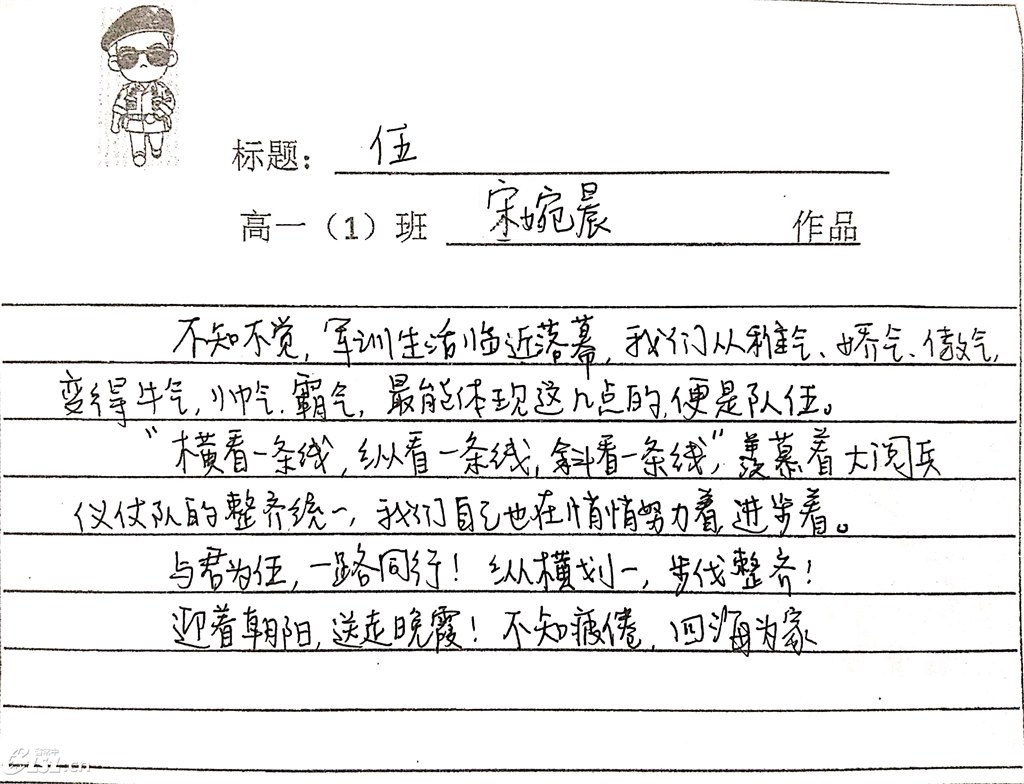 标题：伍
高一（1）班 宋婉晨 作品
不知不觉，军训生活临近落幕，我们从稚气、娇气、傲气，
变得牛气，帅气，霸气，最能体现这几点的，便是队伍。
“横看一条线，纵看一条线，斜看一条线”，羡慕着大阅兵
仪仗队的整齐统一，我们自己也在悄悄努力着，进步着。
与君为伍，一路同行！纵横划一，步伐整齐！
迎着朝阳，送走晚霞！不知疲倦，四海为家